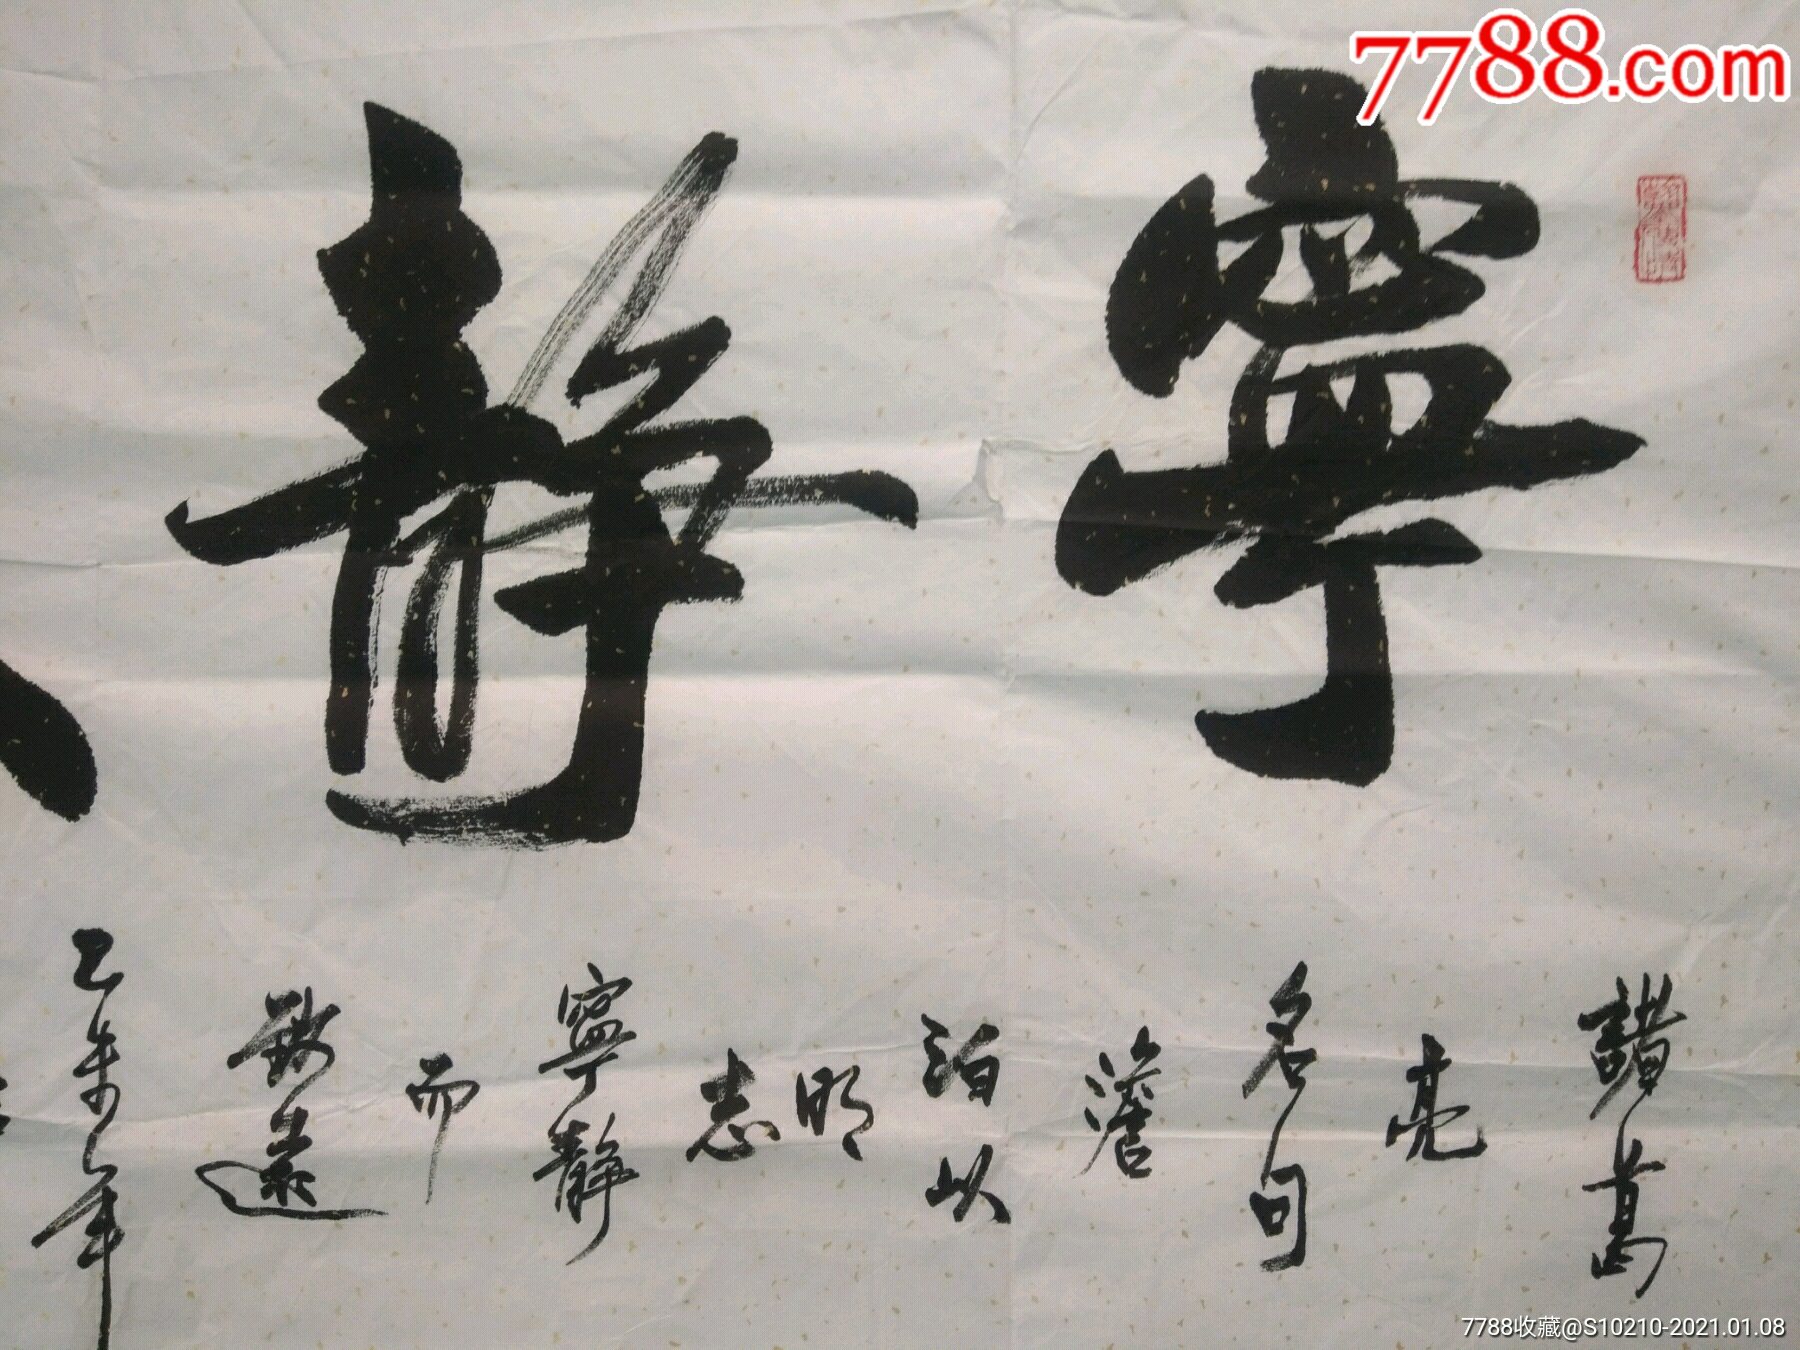 7788.com
寧
靜
諸葛
亮
名句
澹
泊以
明
志
寧靜
而
致遠
乙未年
7788收藏@S10210-2021.01.08